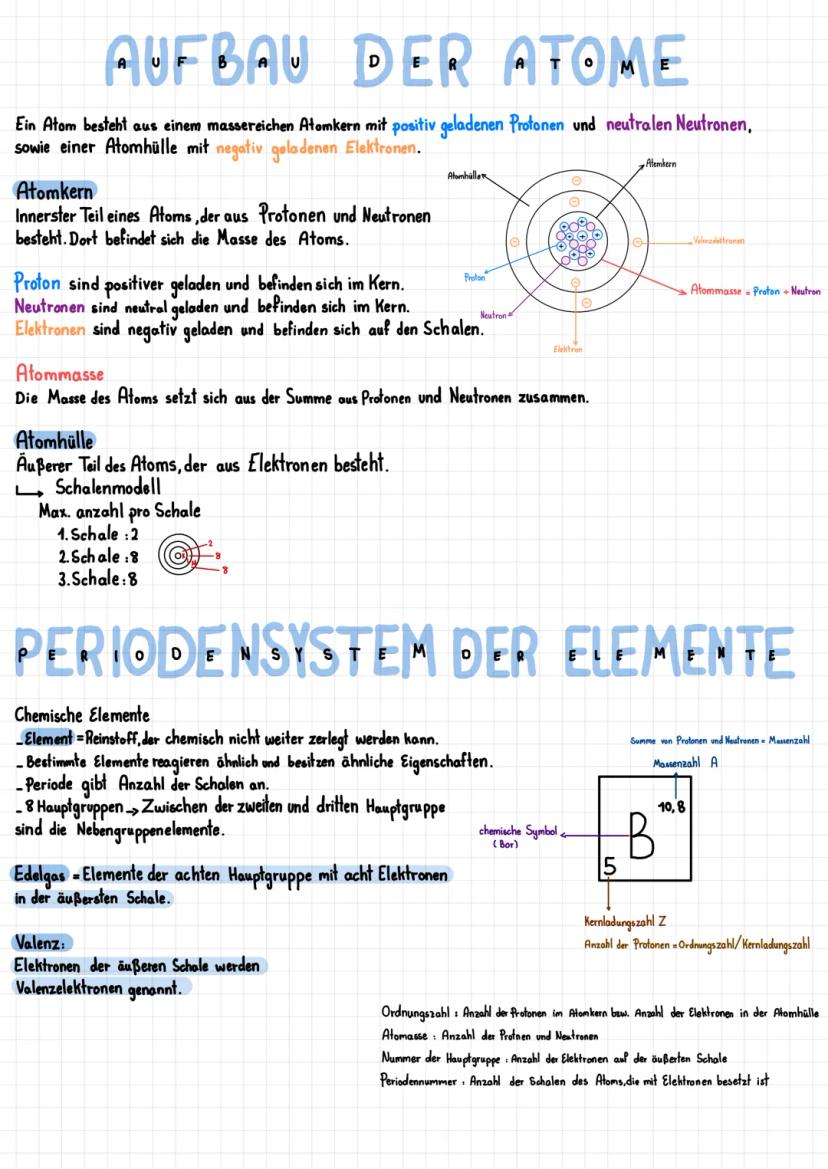 AUFBAU DER ATOME
Ein Atom besteht aus einem massereichen Atomkern mit positiv geladenen Protonen und neutralen Neutronen,
sowie einer Atomhülle mit negativ geladenen Elektronen.
Atomkern
Innerster Teil eines Atoms, der aus Protonen und Neutronen
besteht. Dort befindet sich die Masse des Atoms.
Proton sind positiver geladen und befinden sich im Kern.
Neutronen sind neutral geladen und befinden sich im Kern.
Elektronen sind negativ geladen und befinden sich auf den Schalen.
Atomhülle
Atomkern
Valenzelektronen
Proton
Atommasse = Proton + Neutron
Neutron
Elektron
Atommasse
Die Masse des Atoms setzt sich aus der Summe aus Protonen und Neutronen zusammen.
Atomhülle
Äußerer Teil des Atoms, der aus Elektronen besteht.
Schalenmodell
Max. anzahl pro Schale
1. Schale : 2
2. Schale : 8
3. Schale : 8
2
8
8
PERIODENSYSTEM DER ELEMENTE
Chemische Elemente
- Element = Reinstoff, der chemisch nicht weiter zerlegt werden kann.
- Bestimmte Elemente reagieren ähnlich und besitzen ähnliche Eigenschaften.
- Periode gibt Anzahl der Schalen an.
- 8 Hauptgruppen → Zwischen der zweiten und dritten Hauptgruppe
sind die Nebengruppenelemente.
Edelgas = Elemente der achten Hauptgruppe mit acht Elektronen
in der äußersten Schale.
Valenz:
Elektronen der äußeren Schale werden
Valenzelektronen genannt.
Summe von Protonen und Neutronen = Massenzahl
Massenzahl A
10,8
chemische Symbol
(Bor)
B
5
Kernladungszahl Z
Anzahl der Protonen = Ordnungszahl/Kernladungszahl
Ordnungszahl : Anzahl der Protonen im Atomkern bzw. Anzahl der Elektronen in der Atomhülle
Atomasse : Anzahl der Protnen und Neutronen
Nummer der Hauptgruppe : Anzahl der Elektronen auf der äußerten Schale
Periodennummer : Anzahl der Schalen des Atoms, die mit Elektronen besetzt ist